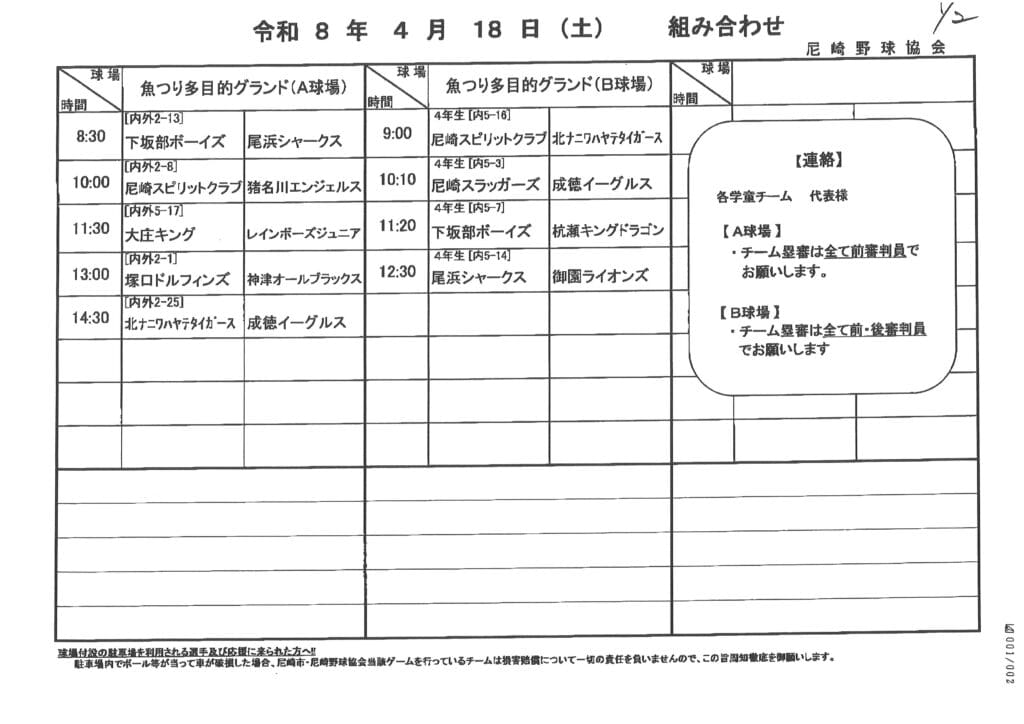 令和 8 年 4 月 18 日 (土) 組み合わせ
1/2
尼崎野球協会
球場 時間 魚つり多目的グランド(A球場) 球場 時間 魚つり多目的グランド(B球場) 球場 時間
8:30 [内外2-13] 下坂部ボーイズ 尾浜シャークス
9:00 4年生 [内5-16] 尼崎スピリットクラブ 北ナニワハヤテタイガース
10:00 [内外2-8] 尼崎スピリットクラブ 猪名川エンジェルス
10:10 4年生 [内5-3] 尼崎スラッガーズ 成徳イーグルス
11:30 [内外5-17] 大庄キング レインボーズジュニア
11:20 4年生 [内5-7] 下坂部ボーイズ 杭瀬キングドラゴン
13:00 [内外2-1] 塚口ドルフィンズ 神津オールブラックス
12:30 4年生 [内5-14] 尾浜シャークス 御園ライオンズ
14:30 [内外2-25] 北ナニワハヤテタイガース 成徳イーグルス
【連絡】
各学童チーム 代表様
【A球場】
・チーム塁審は全て前審判員で
お願いします。
【B球場】
・チーム塁審は全て前・後審判員
でお願いします
球場付設の駐車場を利用される選手及び応援に来られた方へ!!
駐車場内でボール等が当って車が破損した場合、尼崎市・尼崎野球協会当該ゲームを行っているチームは損害賠償について一切の責任を負いませんので、この旨周知徹底を御願いします。
001/002